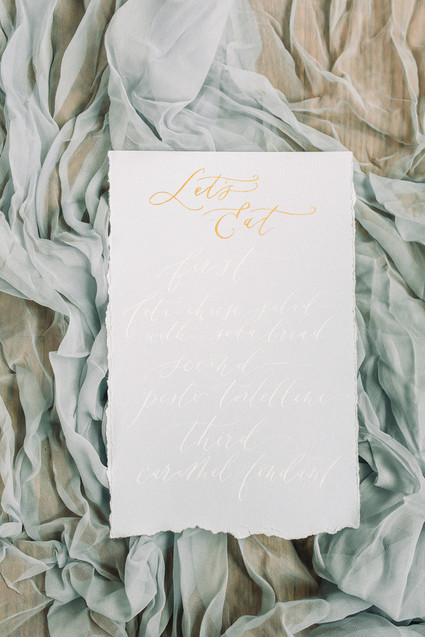 Let's
Eat
first
feta cheese salad
with soda bread
second
pesto tortelline
third
caramel fondant